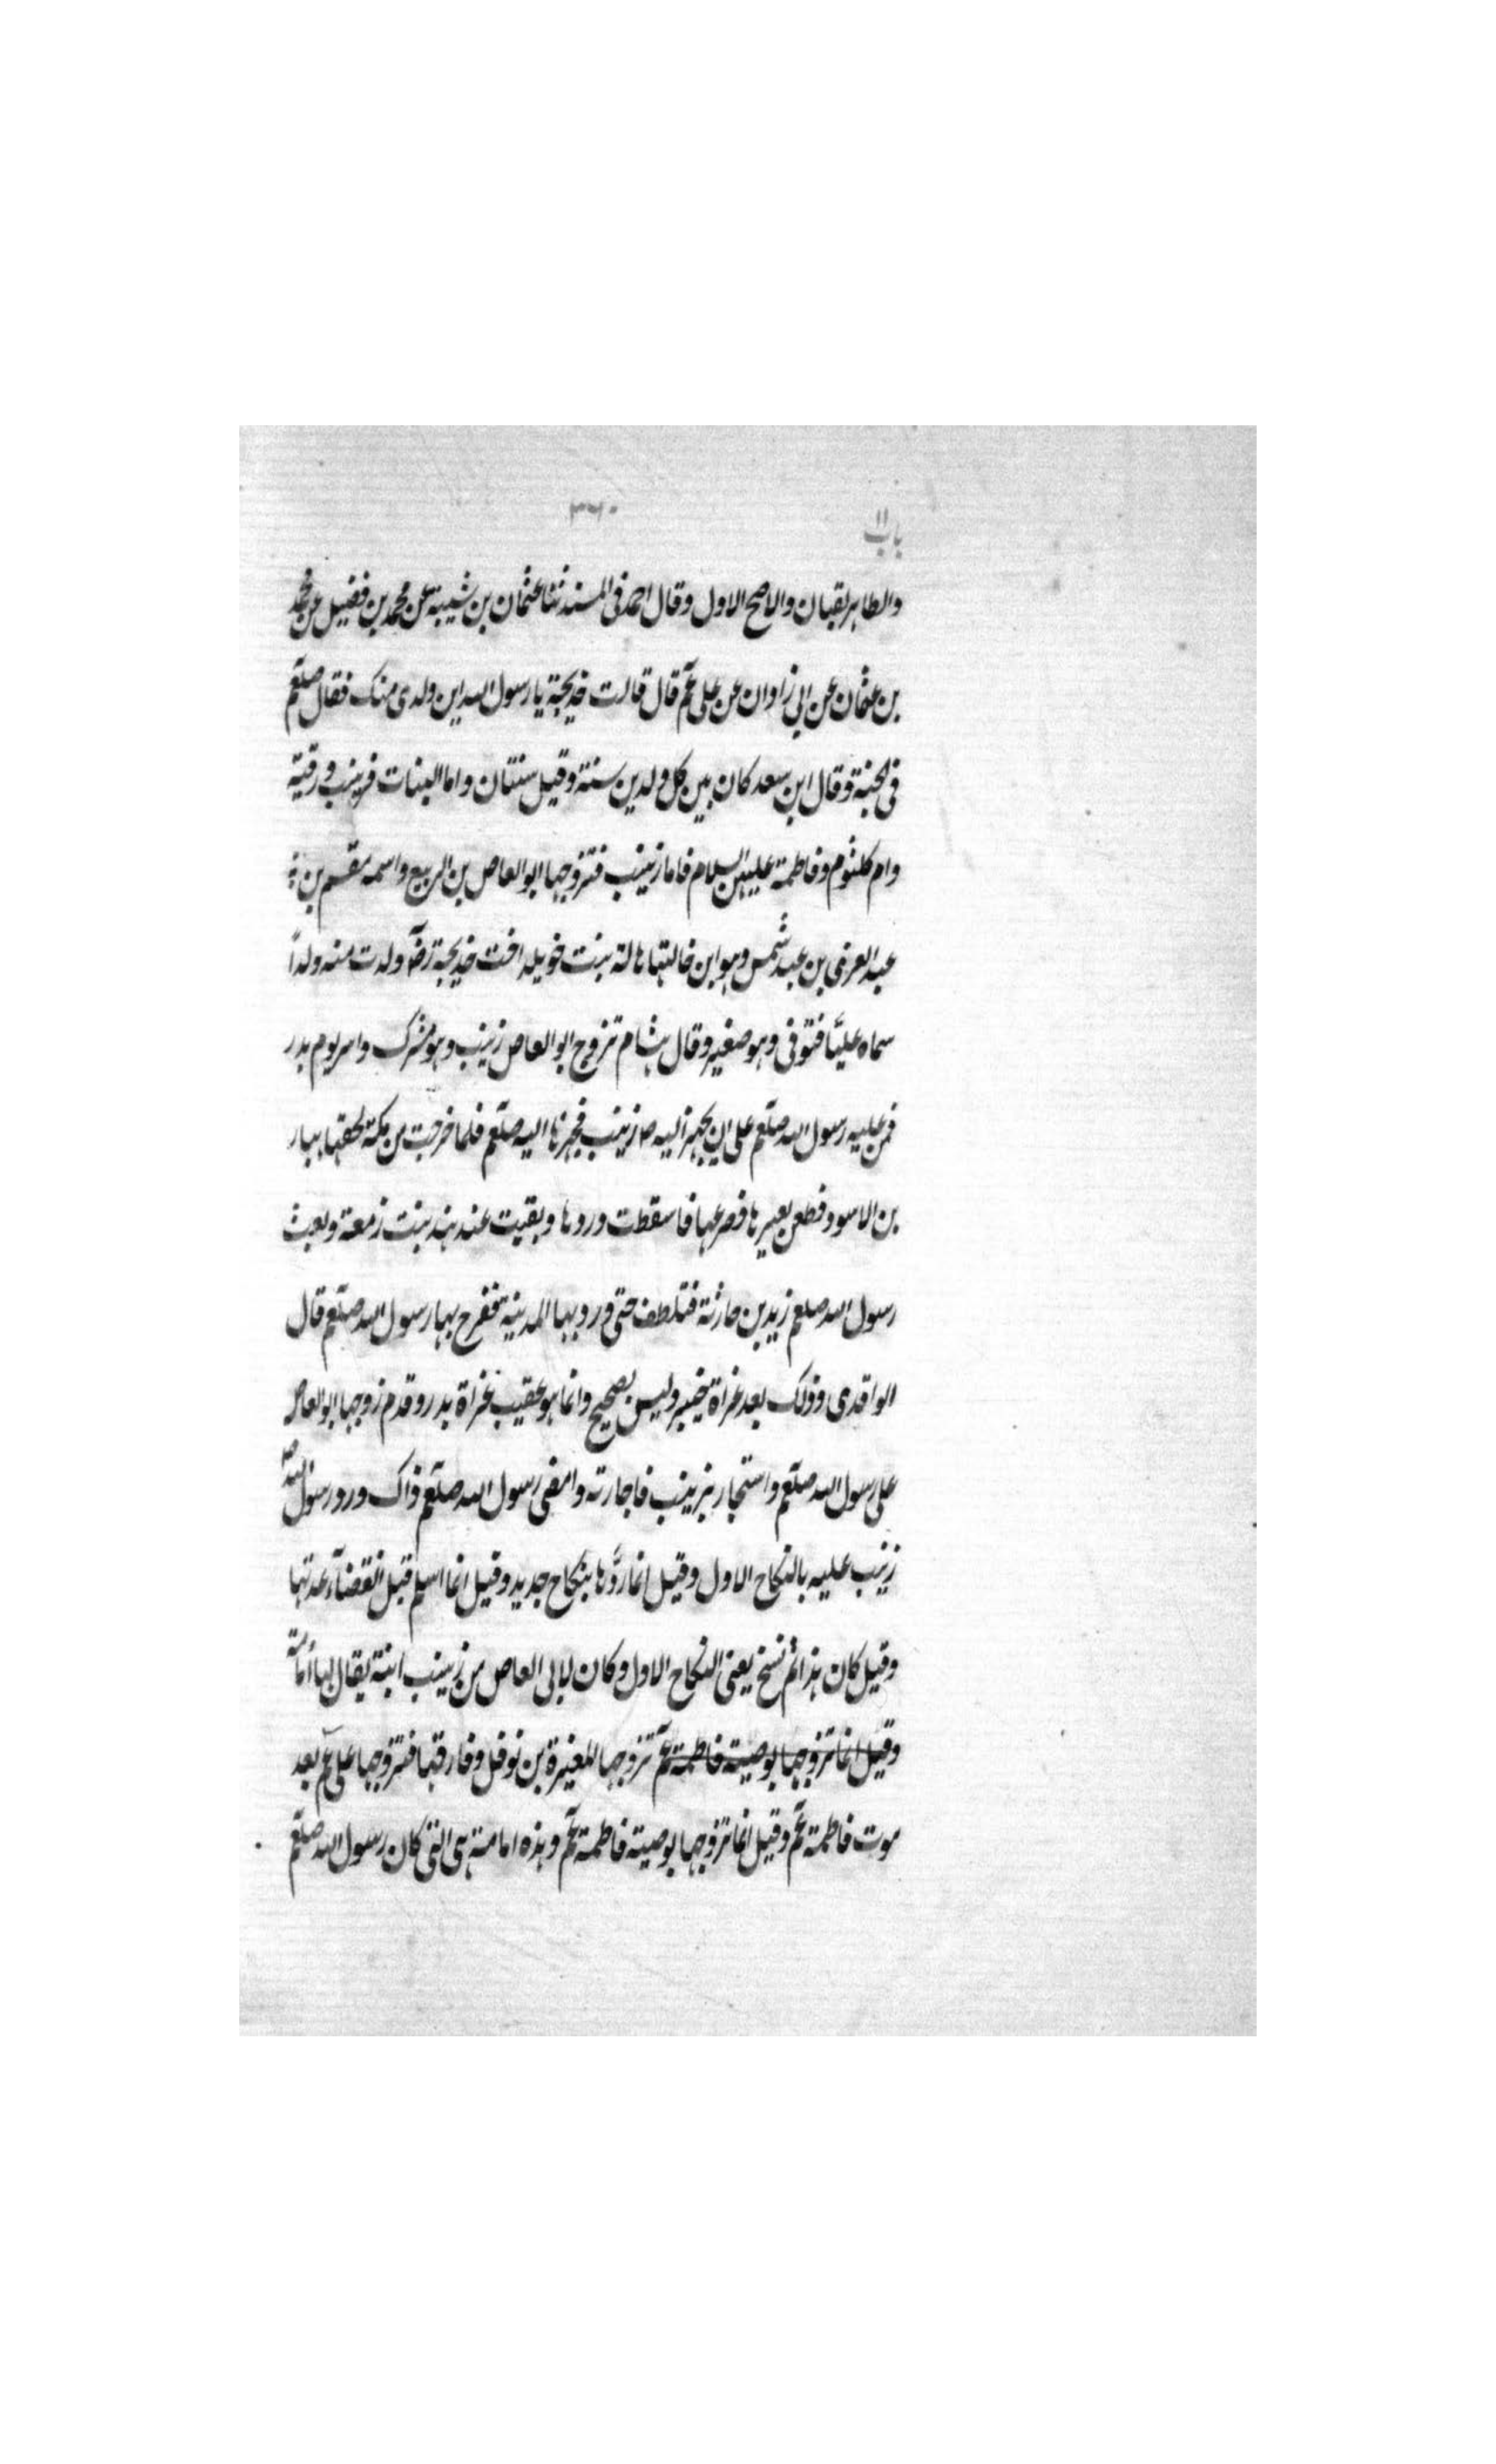 باب ١١ ٣٦٠
والطاهر لقبان والاصح الاول وقال احمد فى المسند ثنا عثمان بن شيبة عن محمد بن فضيل عن محمد
بن عثمان عن ابى زادان عن على عم قال قالت خديجة يا رسول الله اين ولدى منك فقال صلعم
فى الجنة وقال ابن سعد كان بين كل ولدين سنة وقيل سنتان واما البنات فزينب ورقية
وام كلثوم وفاطمة عليهن السلام فاما زينب فتزوجها ابو العاص بن الربيع واسمه مقسم بن
عبد العزى بن عبد شمس وهو ابن خالتها هالة بنت خويلد اخت خديجة رضہ ولدت منه ولداً
سماه عليّا فتوفى وهو صغير وقال هشام تزوج ابو العاص زينب وهو مشرك واسر يوم بدر
فمن عليه رسول الله صلعم على ان يجهز اليه زينب فجهزها اليه صلعم فلما خرجت من مكة لحقها هبار
بن الاسود فطعن بعيرها فصرعها فاسقطت وردها وبقيت عند هند بنت زمعة وبعث
رسول الله صلعم زيد بن حارثة فتلطف حتى ورد بها المدينة ففرح بها رسول الله صلعم قال
الواقدى وذلك بعد غزاة خيبر وليس بصحيح وانما هو عقيب غزاة بدر وقدم زوجها ابو العاص
على رسول الله صلعم واستجار بزينب فاجارته وامضى رسول الله صلعم ذاك ورد رسول الله ص
زينب عليه بالنكاح الاول وقيل انما ردّها بنكاح جديد وقيل انما اسلم قبل انقضآء عدتها
وقيل كان هذا ثم نسخ يعنى النكاح الاول وكان لابى العاص من زينب ابنة يقال لها أمامة
وقيل انما تزوجها بوصية فاطمة عم تزوجها المغيرة بن نوفل وفارقها فتزوجها على عم بعد
موت فاطمة عم وقيل انما تزوجها بوصية فاطمة عم وهذه امامة هى التى كان رسول الله صلعم